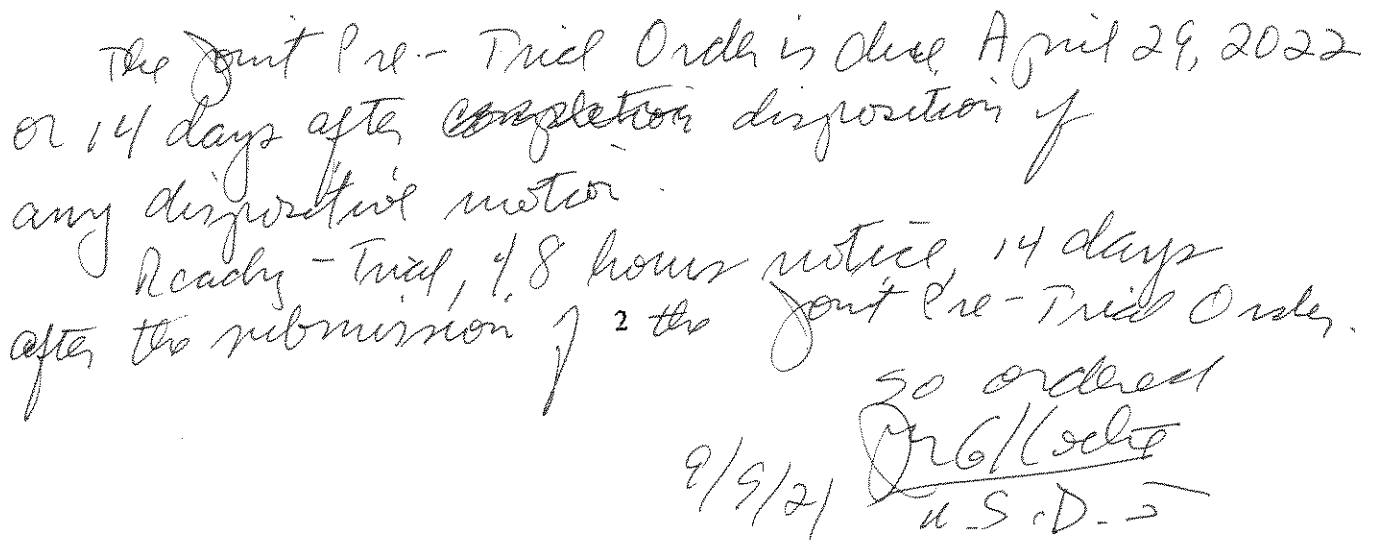 The Joint Pre-Trial Order is due April 29, 2022
or 14 days after completion disposition of
any dispositive motion.
Ready-Trial, 48 hours notice, 14 days
after the submission of 2 the Joint Pre-Trial Order.
so ordered
9/9/21
U.S.D.J